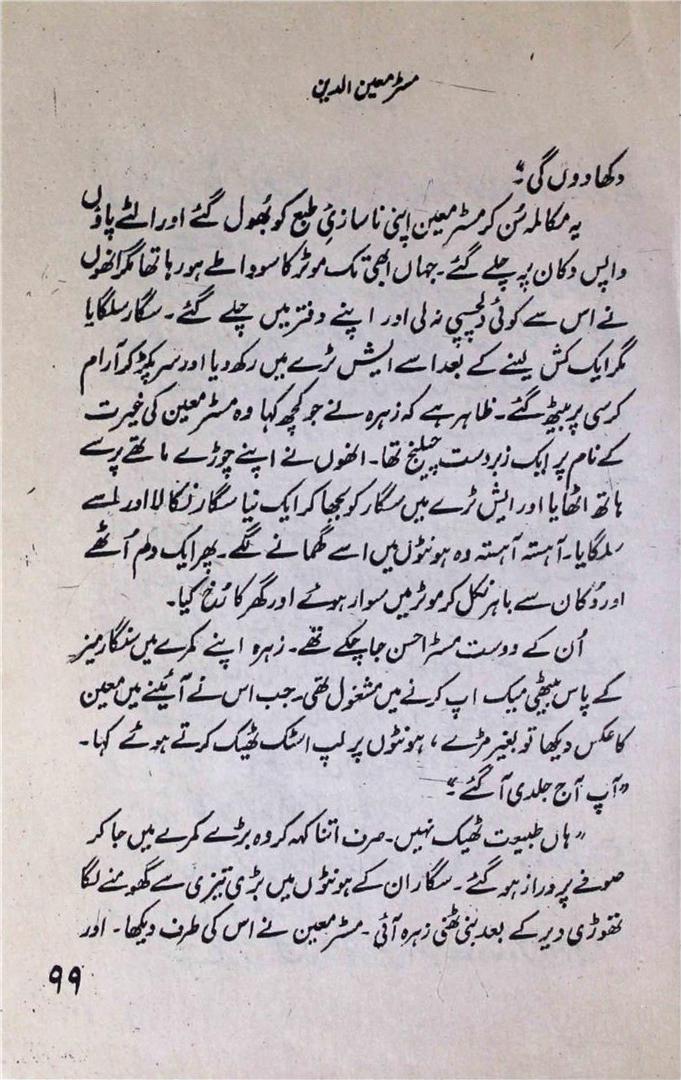 مسٹر معین الدین
دکھا دوں گی‘‘
یہ مکالمہ سُن کر مسٹر معین اپنی ناسازیٔ طبع کو بُھول گئے اور الٹے پاؤں
واپس دکان پر چلے گئے۔ جہاں ابھی تک موٹر کا سودا طے ہو رہا تھا مگر انھوں
نے اس سے کوئی دلچسپی نہ لی اور اپنے دفتر میں چلے گئے۔ سگار سلگایا
مگر ایک کش لینے کے بعد اسے ایش ٹرے میں رکھ دیا اور سر پکڑ کر آرام
کرسی پر بیٹھ گئے۔ ظاہر ہے کہ زہرہ نے جو کچھ کہا وہ مسٹر معین کی غیرت
کے نام پر ایک زبردست چیلنج تھا۔ انھوں نے اپنے چوڑے ماتھے پر سے
ہاتھ اٹھایا اور ایش ٹرے میں سگار کو بجھا کر ایک نیا سگار نکالا اور اسے
سلگایا۔ آہستہ آہستہ وہ ہونٹوں میں اسے گھمانے لگے۔ پھر ایک دم اُٹھے
اور دُکان سے باہر نکل کر موٹر میں سوار ہوئے اور گھر کا رُخ کیا۔
اُن کے دوست مسٹر احسن جا چکے تھے۔ زہرہ اپنے کمرے میں سنگار میز
کے پاس بیٹھی میک اپ کرنے میں مشغول تھی۔ جب اس نے آئینے میں معین
کا عکس دیکھا تو بغیر مڑے، ہونٹوں پر لپ اسٹک ٹھیک کرتے ہوئے کہا۔
’’آپ آج جلدی آ گئے۔‘‘
’’ہاں طبیعت ٹھیک نہیں۔ صرف اتنا کہہ کر وہ بڑے کمرے میں جا کر
صوفے پر دراز ہو گئے۔ سگار ان کے ہونٹوں میں بڑی تیزی سے گھومنے لگا
تھوڑی دیر کے بعد بنی ٹھنی زہرہ آئی۔ مسٹر معین نے اس کی طرف دیکھا۔ اور
۹۹